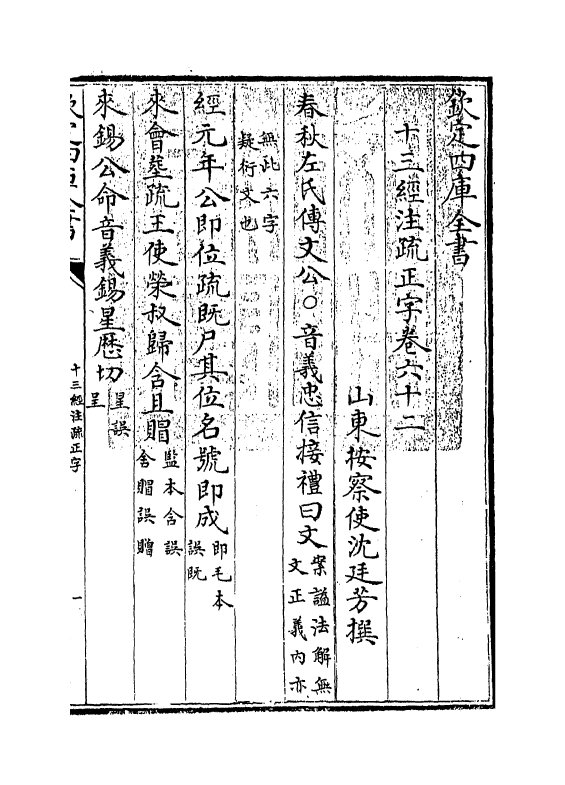 欽定四庫全書
十三經注疏正字卷六十二
山東按察使沈廷芳撰
春秋左氏傳文公○音義忠信接禮曰文案諡法解無文正義內亦
無此六字疑衍文也
經元年公即位疏既尸其位名號即成即毛本誤既
來會葬疏王使榮叔歸含且賵監本含誤舍賵誤贈
來錫公命音義錫星歷切星誤呈
欽定四庫全書
十三經注疏正字
一